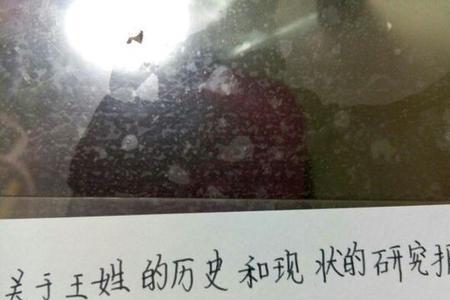 关于王姓的历史和现状的研究报